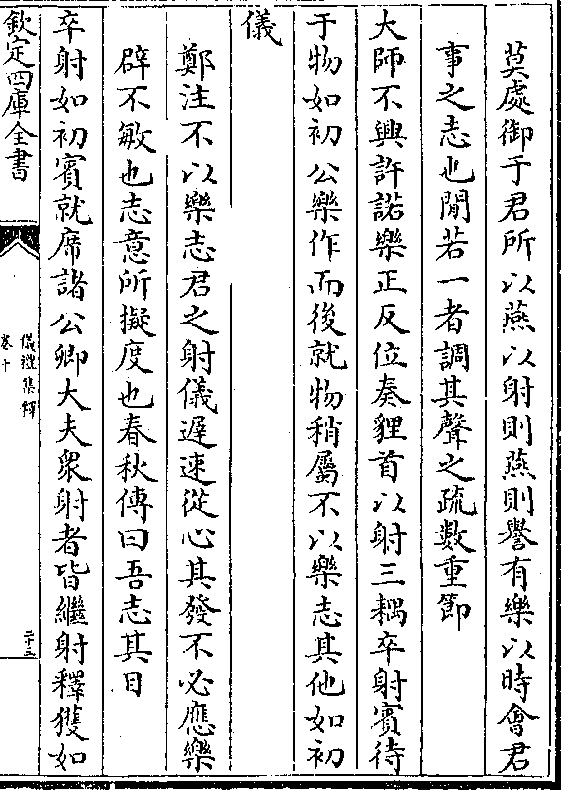 莫處御于君所以燕以射則燕則譽有樂以時會君
事之志也閒若一者調其聲之疏數重節
大師不興許諾樂正反位奏貍首以射三耦卒射賓待
于物如初公樂作而後就物稍屬不以樂志其他如初
儀
鄭注不以樂志君之射儀遲速從心其發不必應樂
辟不敏也志意所擬度也春秋傳曰吾志其目
卒射如初賓就席諸公卿大夫衆射者皆繼射釋獲如
欽定四庫全書
儀禮集釋
卷十
二十三